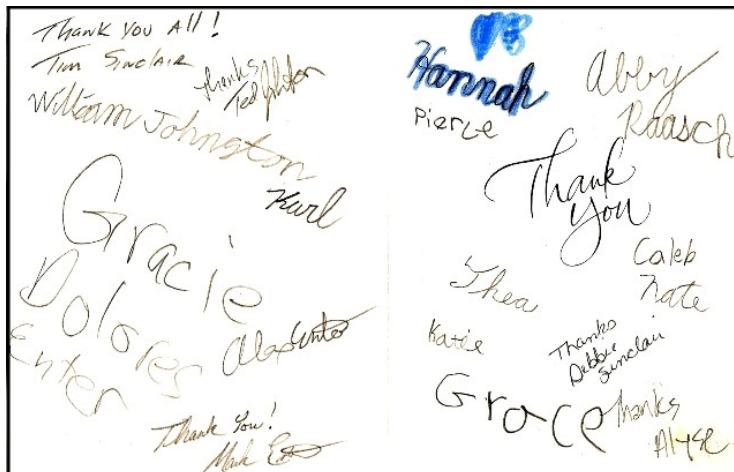 Thank You All!
Tim Sinclair
Thanks
Ted
William Johngton
Karl
Gracie
Dolores
Enter
Thank You!
Mark
Hannah
Pierce
Abby
Raasch
Thank
you
Thea
Caleb
Nate
Katie
Thanks
Debbie
Sinclair
Grace
Thanks
Alyse